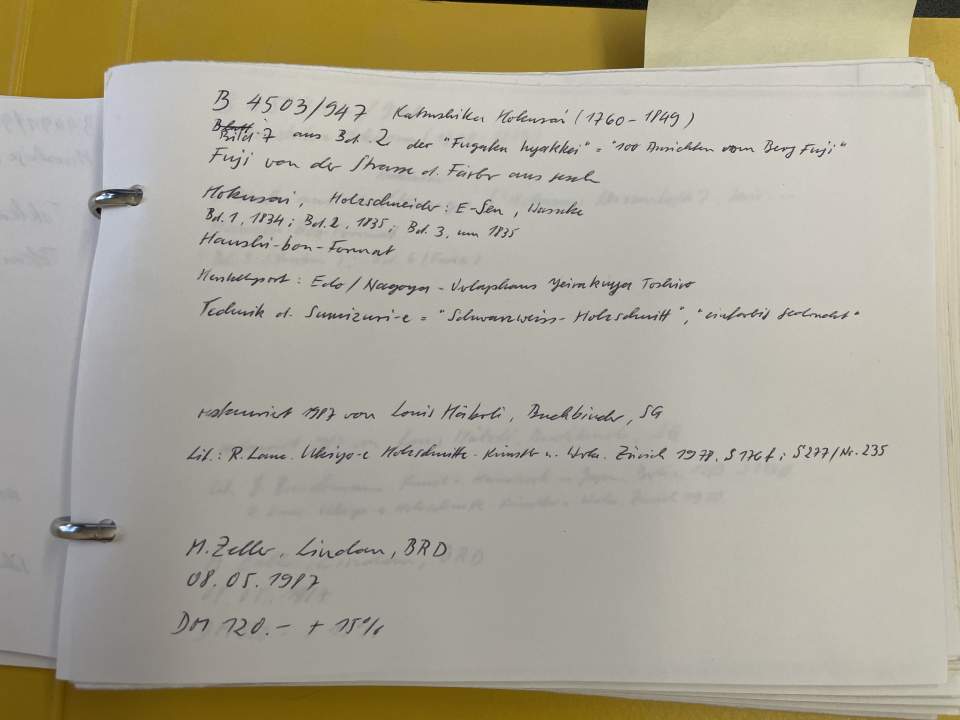 B 4503/947 Katsushika Hokusai (1760-1849)
Bild 7 aus Bd. 2 der "Fugaku hyakkei" = "100 Ansichten vom Berg Fuji"
Fuji von der Strasse d. Färber aus
Hokusai, Holzschneider: E-Sen,
Bd. 1, 1834; Bd. 2, 1835; Bd. 3, um 1835
Hanshi-bon-Format
Herkunftsort: Edo/Nagoya - Verlagshaus Yeirakuya Toshiro
Technik d. Sumizuri-e = "Schwarzweiss-Holzschnitt", "einfarbig gedruckt"
restauriert 1987 von Louis Mäboli, Buchbinder, SG
Lit.: R. Lane. Ukiyo-e Holzschnitte - Künstler u. Werk. Zürich 1978. S 176 f; S 277/Nr. 235
M. Zeller, Lindau, BRD
08.05.1987
DM 120.- + 15%